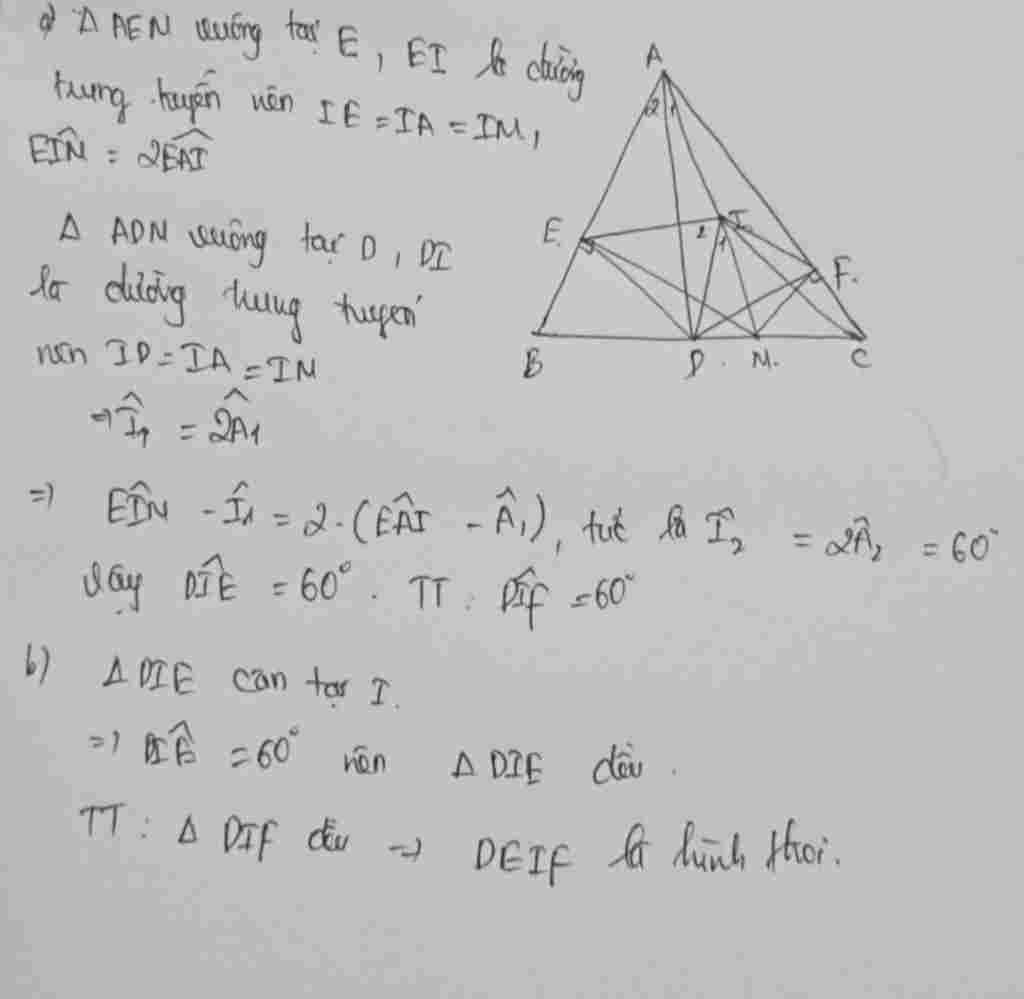 a) Δ AEN vuông tại E, EI là đường
trung tuyến nên IE = IA = IM,
EIN = 2EAI
Δ ADN vuông tại D, DI
là đường trung tuyến
nên ID = IA = IM
=> I1 = 2A1
=> EIN - I1 = 2.(EAI - A1), tức là I2 = 2A2 = 60°
Vậy DIE = 60°. TT: DIF = 60°
b) Δ DIE cân tại I.
=> DIE = 60° nên Δ DIE đều.
TT: Δ DIF đều => DEIF là hình thoi.
A
2 1
E.
I
2
1
F.
B
D.
M.
C